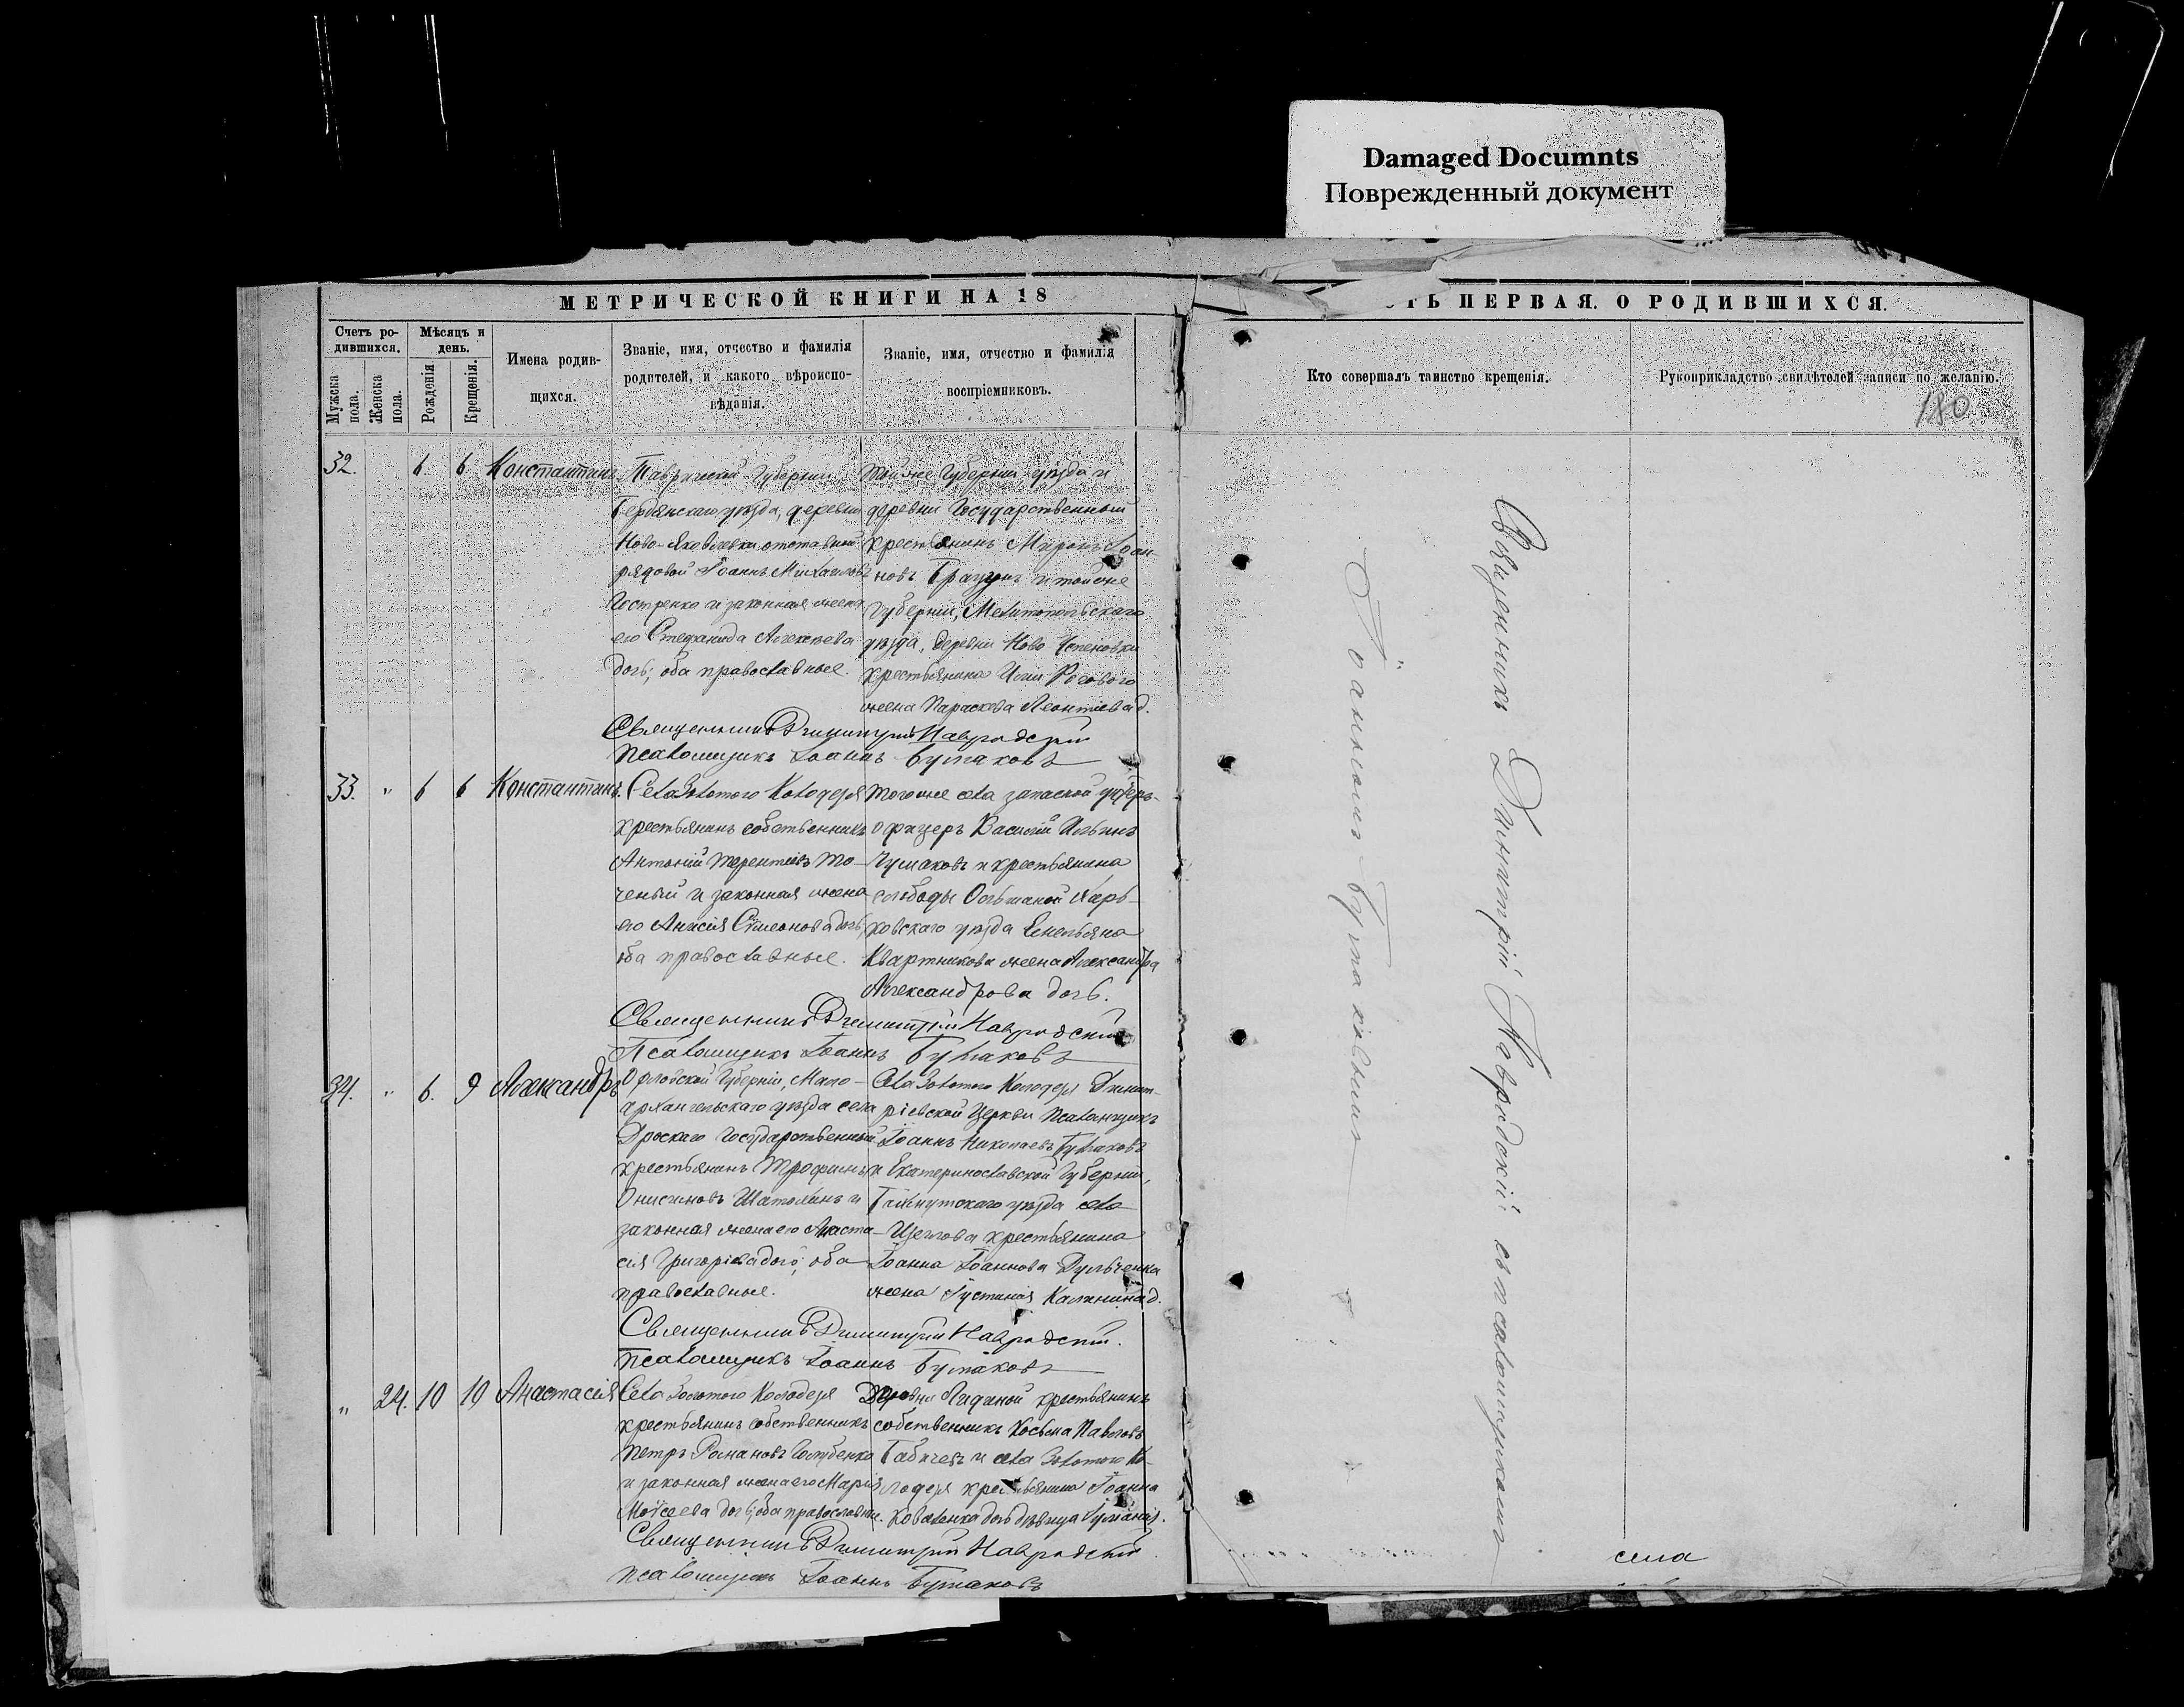 Damaged Documnts
Поврежденный документ
МЕТРИЧЕСКОЙ КНИГИ НА 18
ТЬ ПЕРВАЯ. О РОДИВШИХСЯ.
Счетъ ро-
дившихся.
Мужеска пола.
Женска пола.
Мѣсяцъ и
день.
Рожденія
Крещенія.
Имена родив-
щихся.
Званіе, имя, отчество и фамилія
родителей, и какого вѣроиспо-
вѣданія.
Званіе, имя, отчество и фамилія
воспріемниковъ.
Кто совершалъ таинство крещенія.
Рукоприкладство свидѣтелей записи по желанію.
180
32. 6. 6 Константинъ
Таврической Губерніи
Бердянскаго уѣзда, деревни
Ново-Яковлевки отставной
рядовой Іоаннъ Михаиловъ
и законная жена
его Стефанида Алексѣева
дочь; оба православные.
той же Губерніи, уѣзда и
деревни Государственный
крестьянинъ Миронъ Іоан-
новъ и той же
Губерніи, Мелитопольскаго
уѣзда, деревни Ново Успеновки
крестьянина Рогового
жена Параскева Леонтіева д.
Священникъ Димитрій Навродскій
Псаломщикъ Іоаннъ Бутаковъ
33. " 6 6 Константинъ.
Села Золотого Колодезя
крестьянинъ собственникъ
Антоній Терентіевъ То-
ченый и законная жена
его Анисія Симеонова дочь,
оба православные.
того же села запасной унтеръ-
офицеръ Василій Ильинъ
Чумаковъ и крестьянина
слободы Ольшаной Харь-
ковскаго уѣзда Емельяна
Квартникова жена Александра
Александрова дочь.
Священникъ Димитрій Навродскій
Псаломщикъ Іоаннъ Бутаковъ
34. " 6. 9 Александръ
Орловской Губерніи, Мало-
архангельскаго уѣзда села
Государственный
крестьянинъ Трофимъ
Онисимовъ Шатохинъ и
законная жена его Анаста-
сія Григоріева дочь; оба
православные.
Села Золотого Колодезя Димит-
ріевской Церкви Псаломщикъ
Іоаннъ Николаевъ Бутаковъ
и Екатеринославской Губерніи,
Бахмутскаго уѣзда села
крестьянина
Іоанна Іоаннова Дульченка
жена Іустинія Калинина д.
Священникъ Димитрій Навродскій.
Псаломщикъ Іоаннъ Бутаковъ
" 24. 10 10 Анастасія
Села Золотого Колодезя
крестьянинъ собственникъ
Петръ Романовъ Голубенко
и законная жена его Марія
Моисеева дочь; оба православные.
Деревни крестьянинъ
собственникъ Косьма Павловъ
Бабичевъ и села Золотого Ко-
лодезя крестьянина Іоанна
Коваленка дочь дѣвица
Священникъ Димитрій Навродскій
Псаломщикъ Іоаннъ Бутаковъ
Священникъ Димитрій Навродскій съ псаломщикомъ
Іоанномъ Бутаковымъ
села